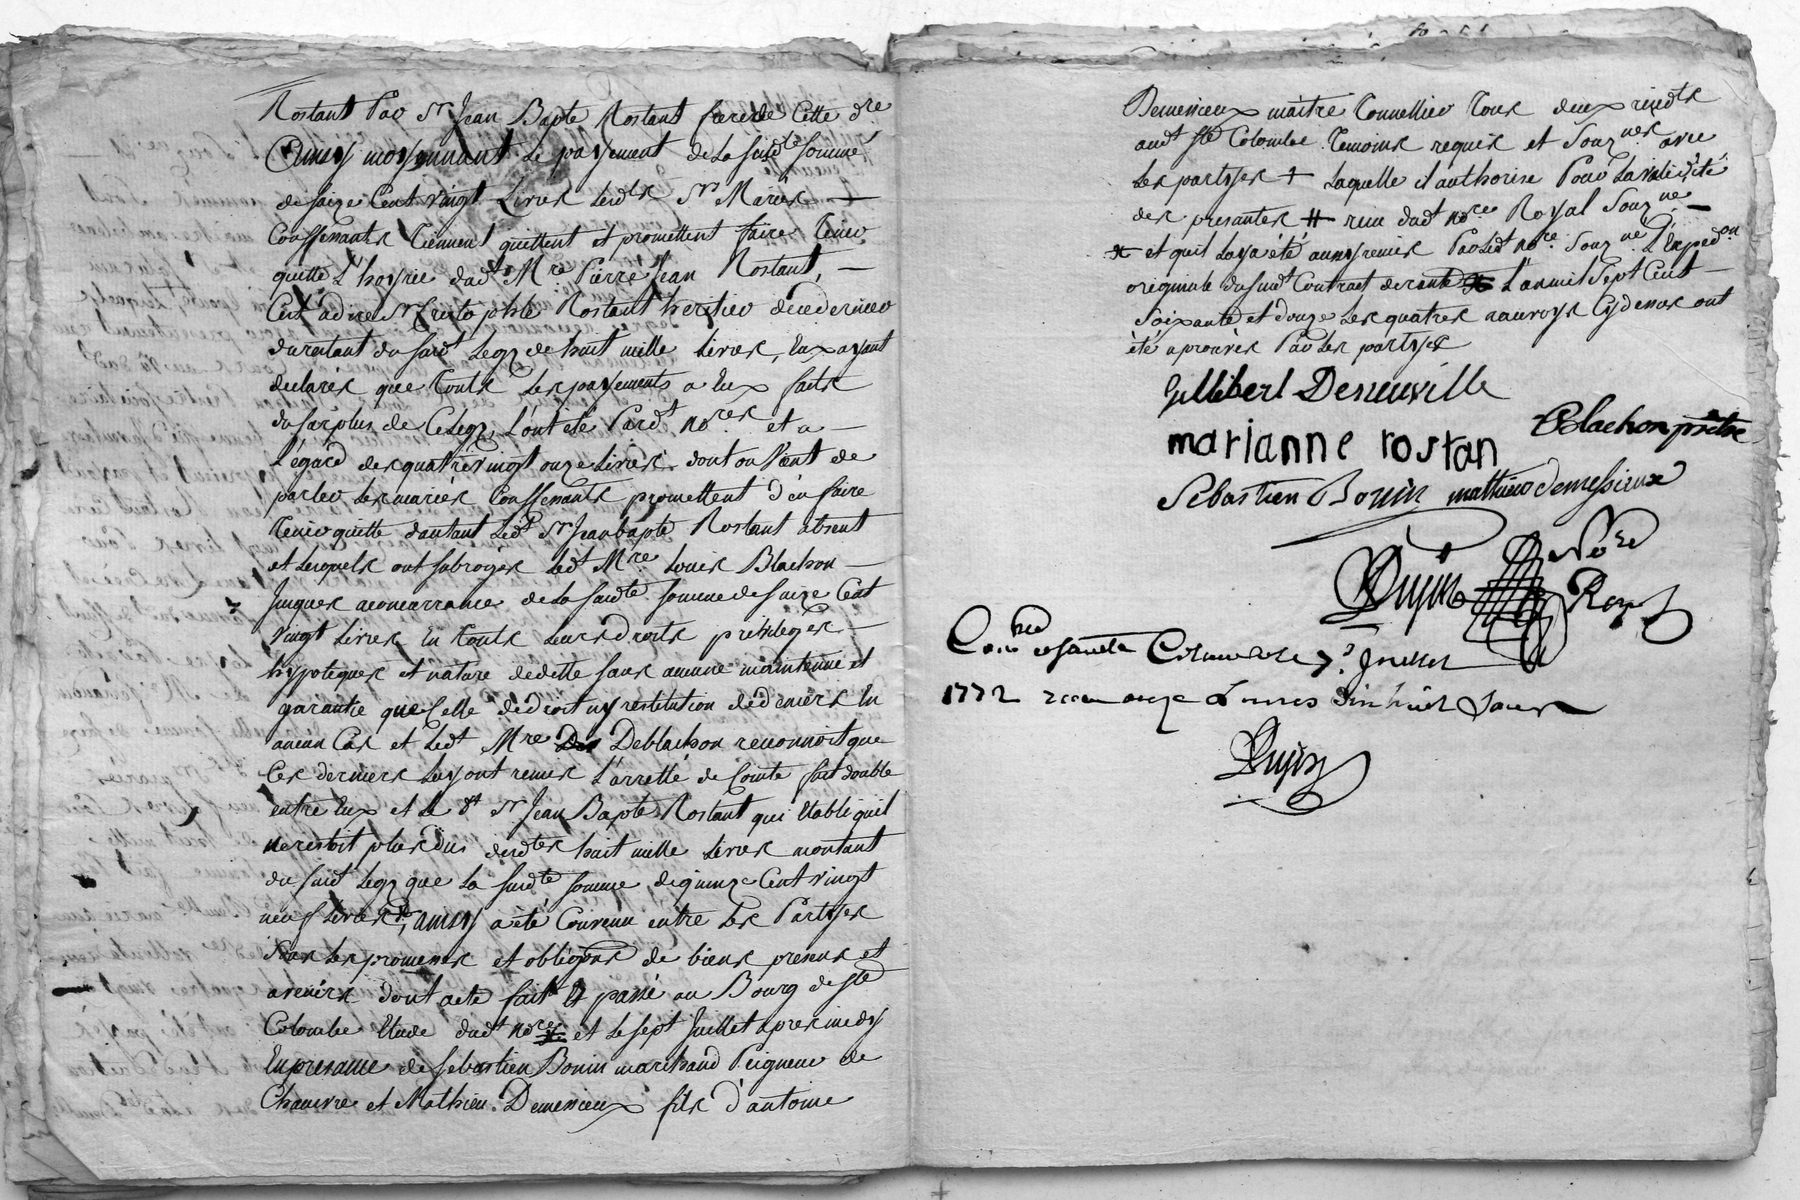 Rostant Par Sr Jean Bapte Rostant frere de Cette dre
Amsy moyennant le payement de la susdte somme
de saize Cent vingt Livres lesdts Srs Mariés —
Conssenants tiennent quittent et promettent faire tenir
quitte L'hoyrie dudt Mre Pierre Jean Rostant, —
Cest adire Sr Cristophle Rostant heritier dicedernier
durestant du susdt Legz de huit mille Livres, Eux ayant
declarés que touts Les payements a Eux faits
dusurplus de Ce Legz, L'ont eté Pardt nores et a —
L'egard des quatrevingt onze Livres dont on Vient de
parler Les mariés Conssenants promettent d'en faire
tenir quitte dautant Ledt Sr Jeanbapte Rostant absent
et lesquels ont subrogés Ledt Mre Louis Blachon —
Jusques aconcurrance de la susdte somme de saize Cent
vingt Livres En touts leurs droits privileges —
hypoteques et nature dedette sans aucune maintenue et
garantie que Celle dedroit ny restitution dedeniers En
aucun Cas et Ledt Mre Deblachon reconnoit que
Ces derniers luy ont remis L'arretté de Comte fait double
entre Eux et le dt Sr Jean Bapte Rostant qui Etablit quil
nerestoit plus du desdtes huit mille Livres montant
du susdt Legz que La susdte somme dequinze Cent vingt
neuf Livres, amsy a eté Convenu entre les Partyes
sous les promesses et obligons de biens presens et
avenirs dont acte fait et passé au Bourg de Ste
Colombe Etude dudt nore et le sept Juillet apres midy
En presance de Sebastien Bonin marchand Peigneur de
Chanvre et Mathieu Demessieux fils d'antoine
Demessieux maitre tonnellier tous deux residts
audt Ste Colombe temoins requis et Souznes avec
Les partyes + Laquelle il authorise Pour La validité
des presantes # reçu dudt nore Royal Souzne —
et quil Luya eté aussy remis Par Ledt nore Souzne L'Expedon
originale du susdt Contract de rente L'anmil Sept Cent —
Soixante et douze Les quatres Cydessus ont
été aprouvés Par Les partyes
Gillibert Deneuville
Blachon prêtre
marianne rostan
Sebastien Bonin mathieu demessieux
Dujin Nore
Royal
Conlé a Sainte Colombe le 7e Juillet
1772 recu onze Livres dix huit Sous
Dujin